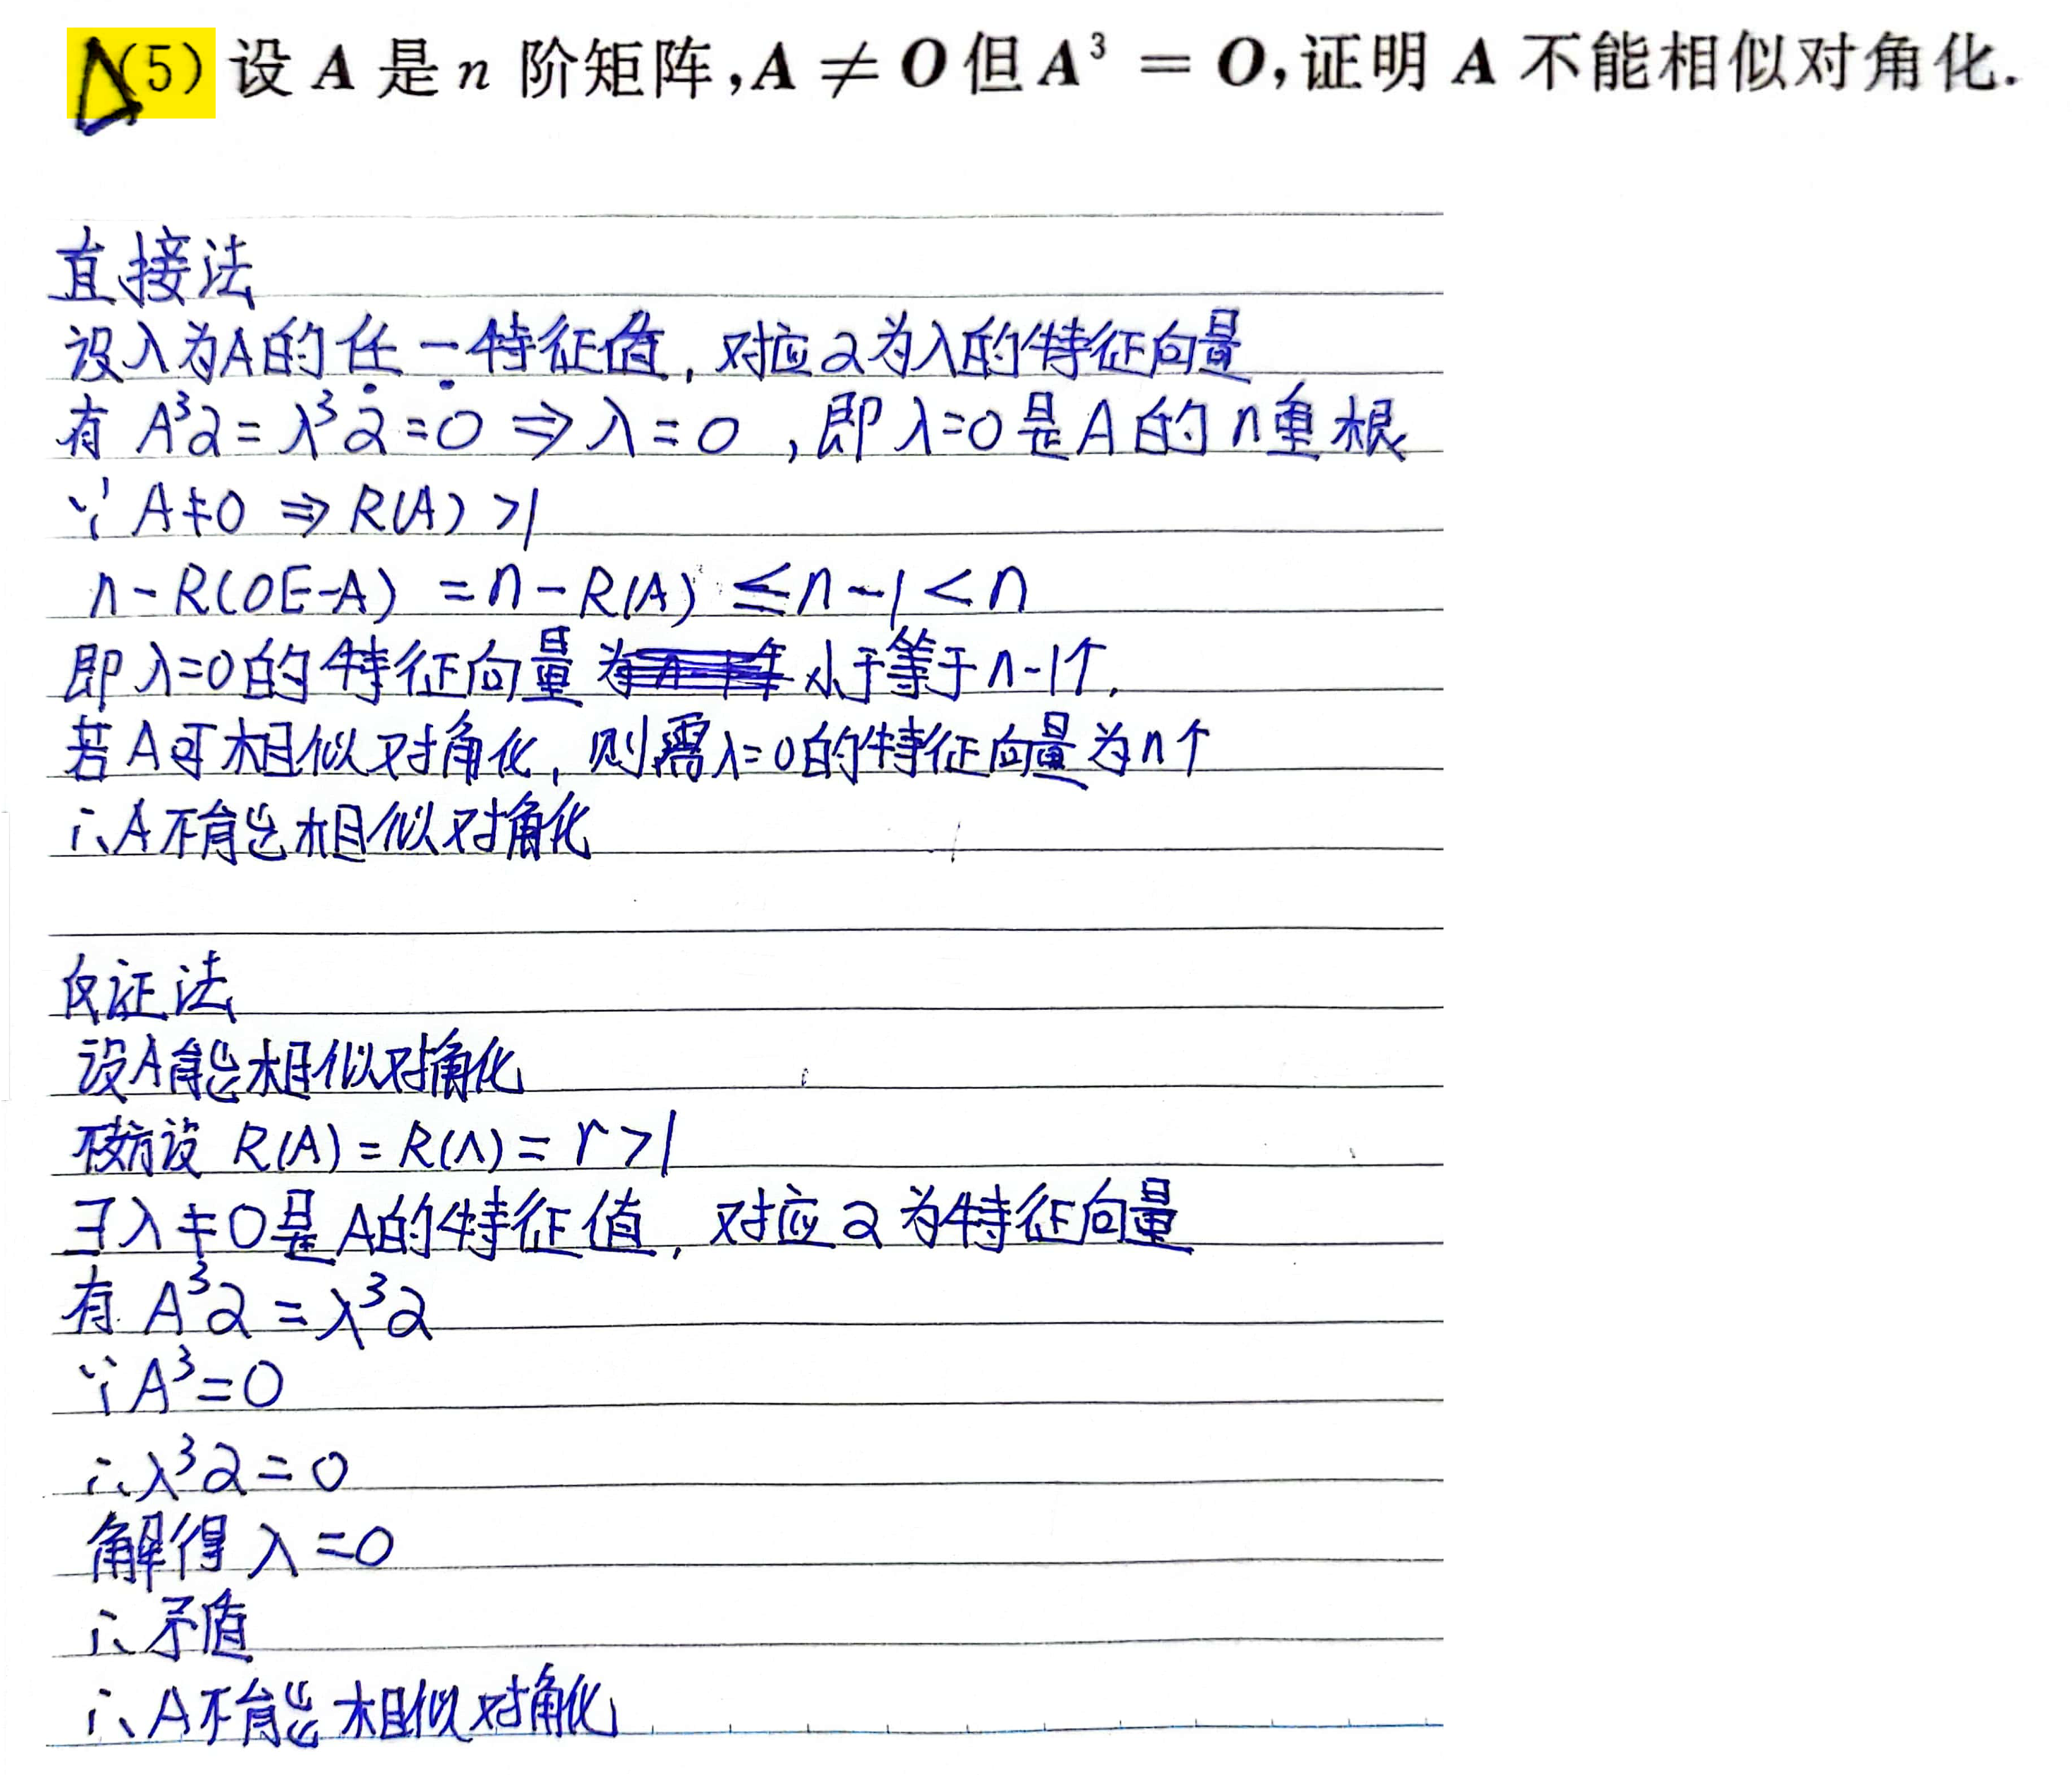 △(5) 设 A 是 n 阶矩阵,A ≠ O 但 A³ = O,证明 A 不能相似对角化.
直接法
设λ为A的任一特征值,对应α为λ的特征向量
有 A³α = λ³α = 0 ⇒ λ = 0 ,即 λ=0 是 A 的 n重根
∵ A≠0 ⇒ R(A) >1
n - R(0E-A) = n - R(A) ≤ n-1 < n
即 λ=0 的特征向量 小于等于 n-1个.
若 A可相似对角化, 则需 λ=0的特征向量为n个
∴ A不能相似对角化
反证法
设A能相似对角化
不妨设 R(A) = R(Λ) = r >1
∃λ≠0是A的特征值, 对应α为特征向量
有 A³α = λ³α
∵ A³=0
∴ λ³α = 0
解得 λ=0
∴ 矛盾
∴ A不能相似对角化